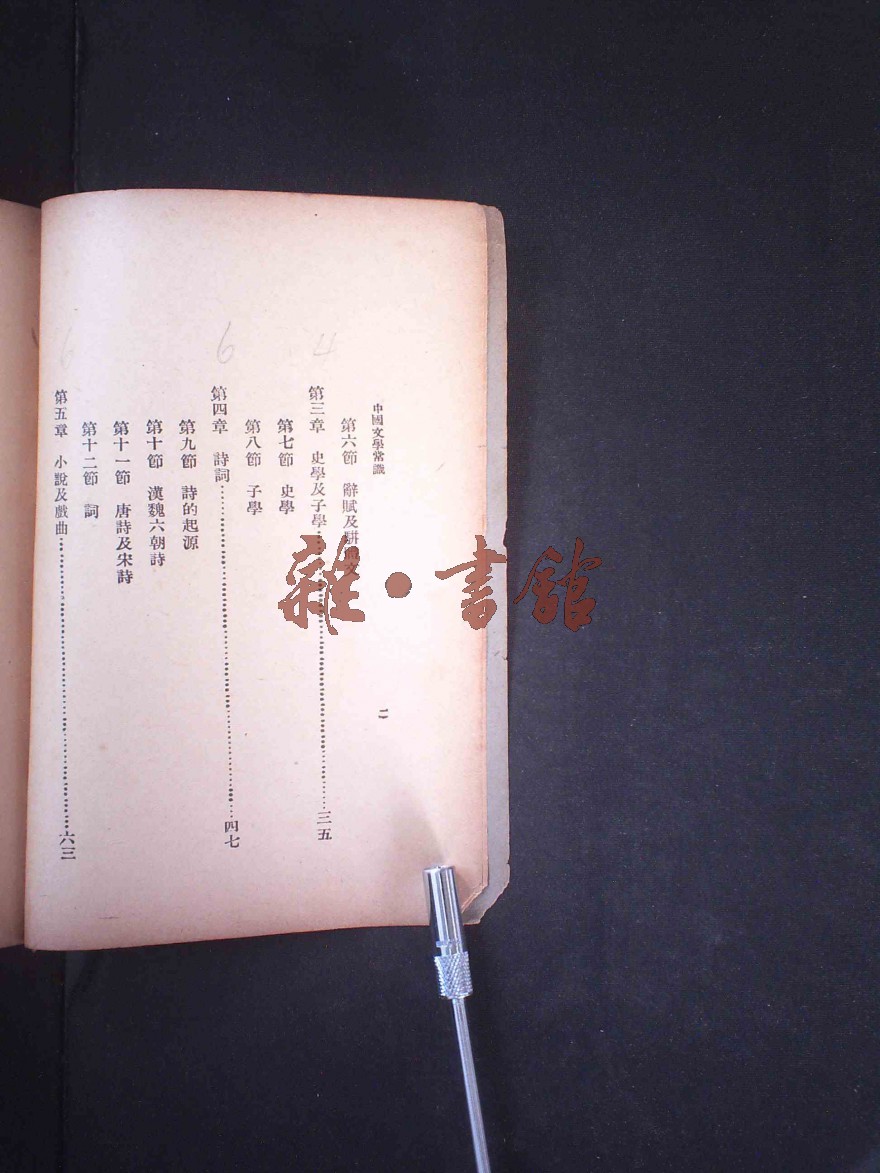 中國文學常識
二
第六節　辭賦及駢體文
第三章　史學及子學……三五
第七節　史學
第八節　子學
第四章　詩詞……四七
第九節　詩的起源
第十節　漢魏六朝詩
第十一節　唐詩及宋詩
第十二節　詞
第五章　小說及戲曲……六三
4
6
6
雜·書館